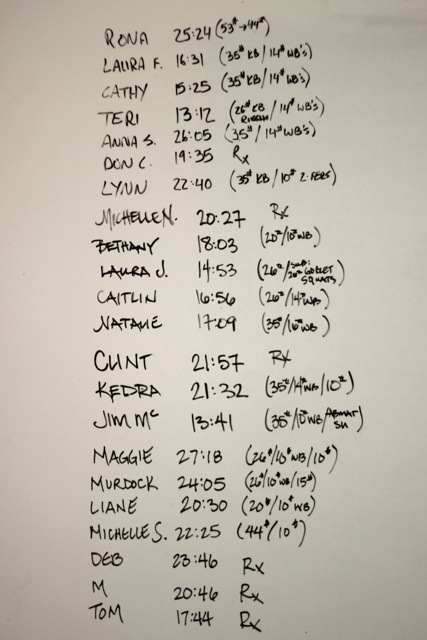 RONA 25:24 (53# → 44#)
LAURA F. 16:31 (35# KB / 14# WB's)
CATHY 15:25 (35# KB / 14# WB's)
TERI 13:12 (26# KB RUSSIAN / 14# WB's)
ANNA S. 26:05 (35# / 14# WB's)
DON C. 19:35 Rx
LYNN 22:40 (35# KB / 10#
MICHELLE N. 20:27 Rx
BETHANY 18:03 (20# / 10# WB)
LAURA J. 14:53 (26# / SUB: 26# GOBLET SQUATS)
CAITLIN 16:56 (26# / 14# WB)
NATALIE 17:09 (35# / 10# WB)
CLINT 21:57 Rx
KEDRA 21:32 (35# / 14# WB / 10#)
JIM Mc 13:41 (35# / 10# WB / ABMAT SU)
MAGGIE 27:18 (26# / 10# WB / 10#)
MURDOCK 24:05 (26# / 10# WB / 15#)
LIANE 20:30 (20# / 10# WB)
MICHELLE S. 22:25 (44# / 10#)
DEB 23:46 Rx
M 20:46 Rx
TOM 17:44 Rx